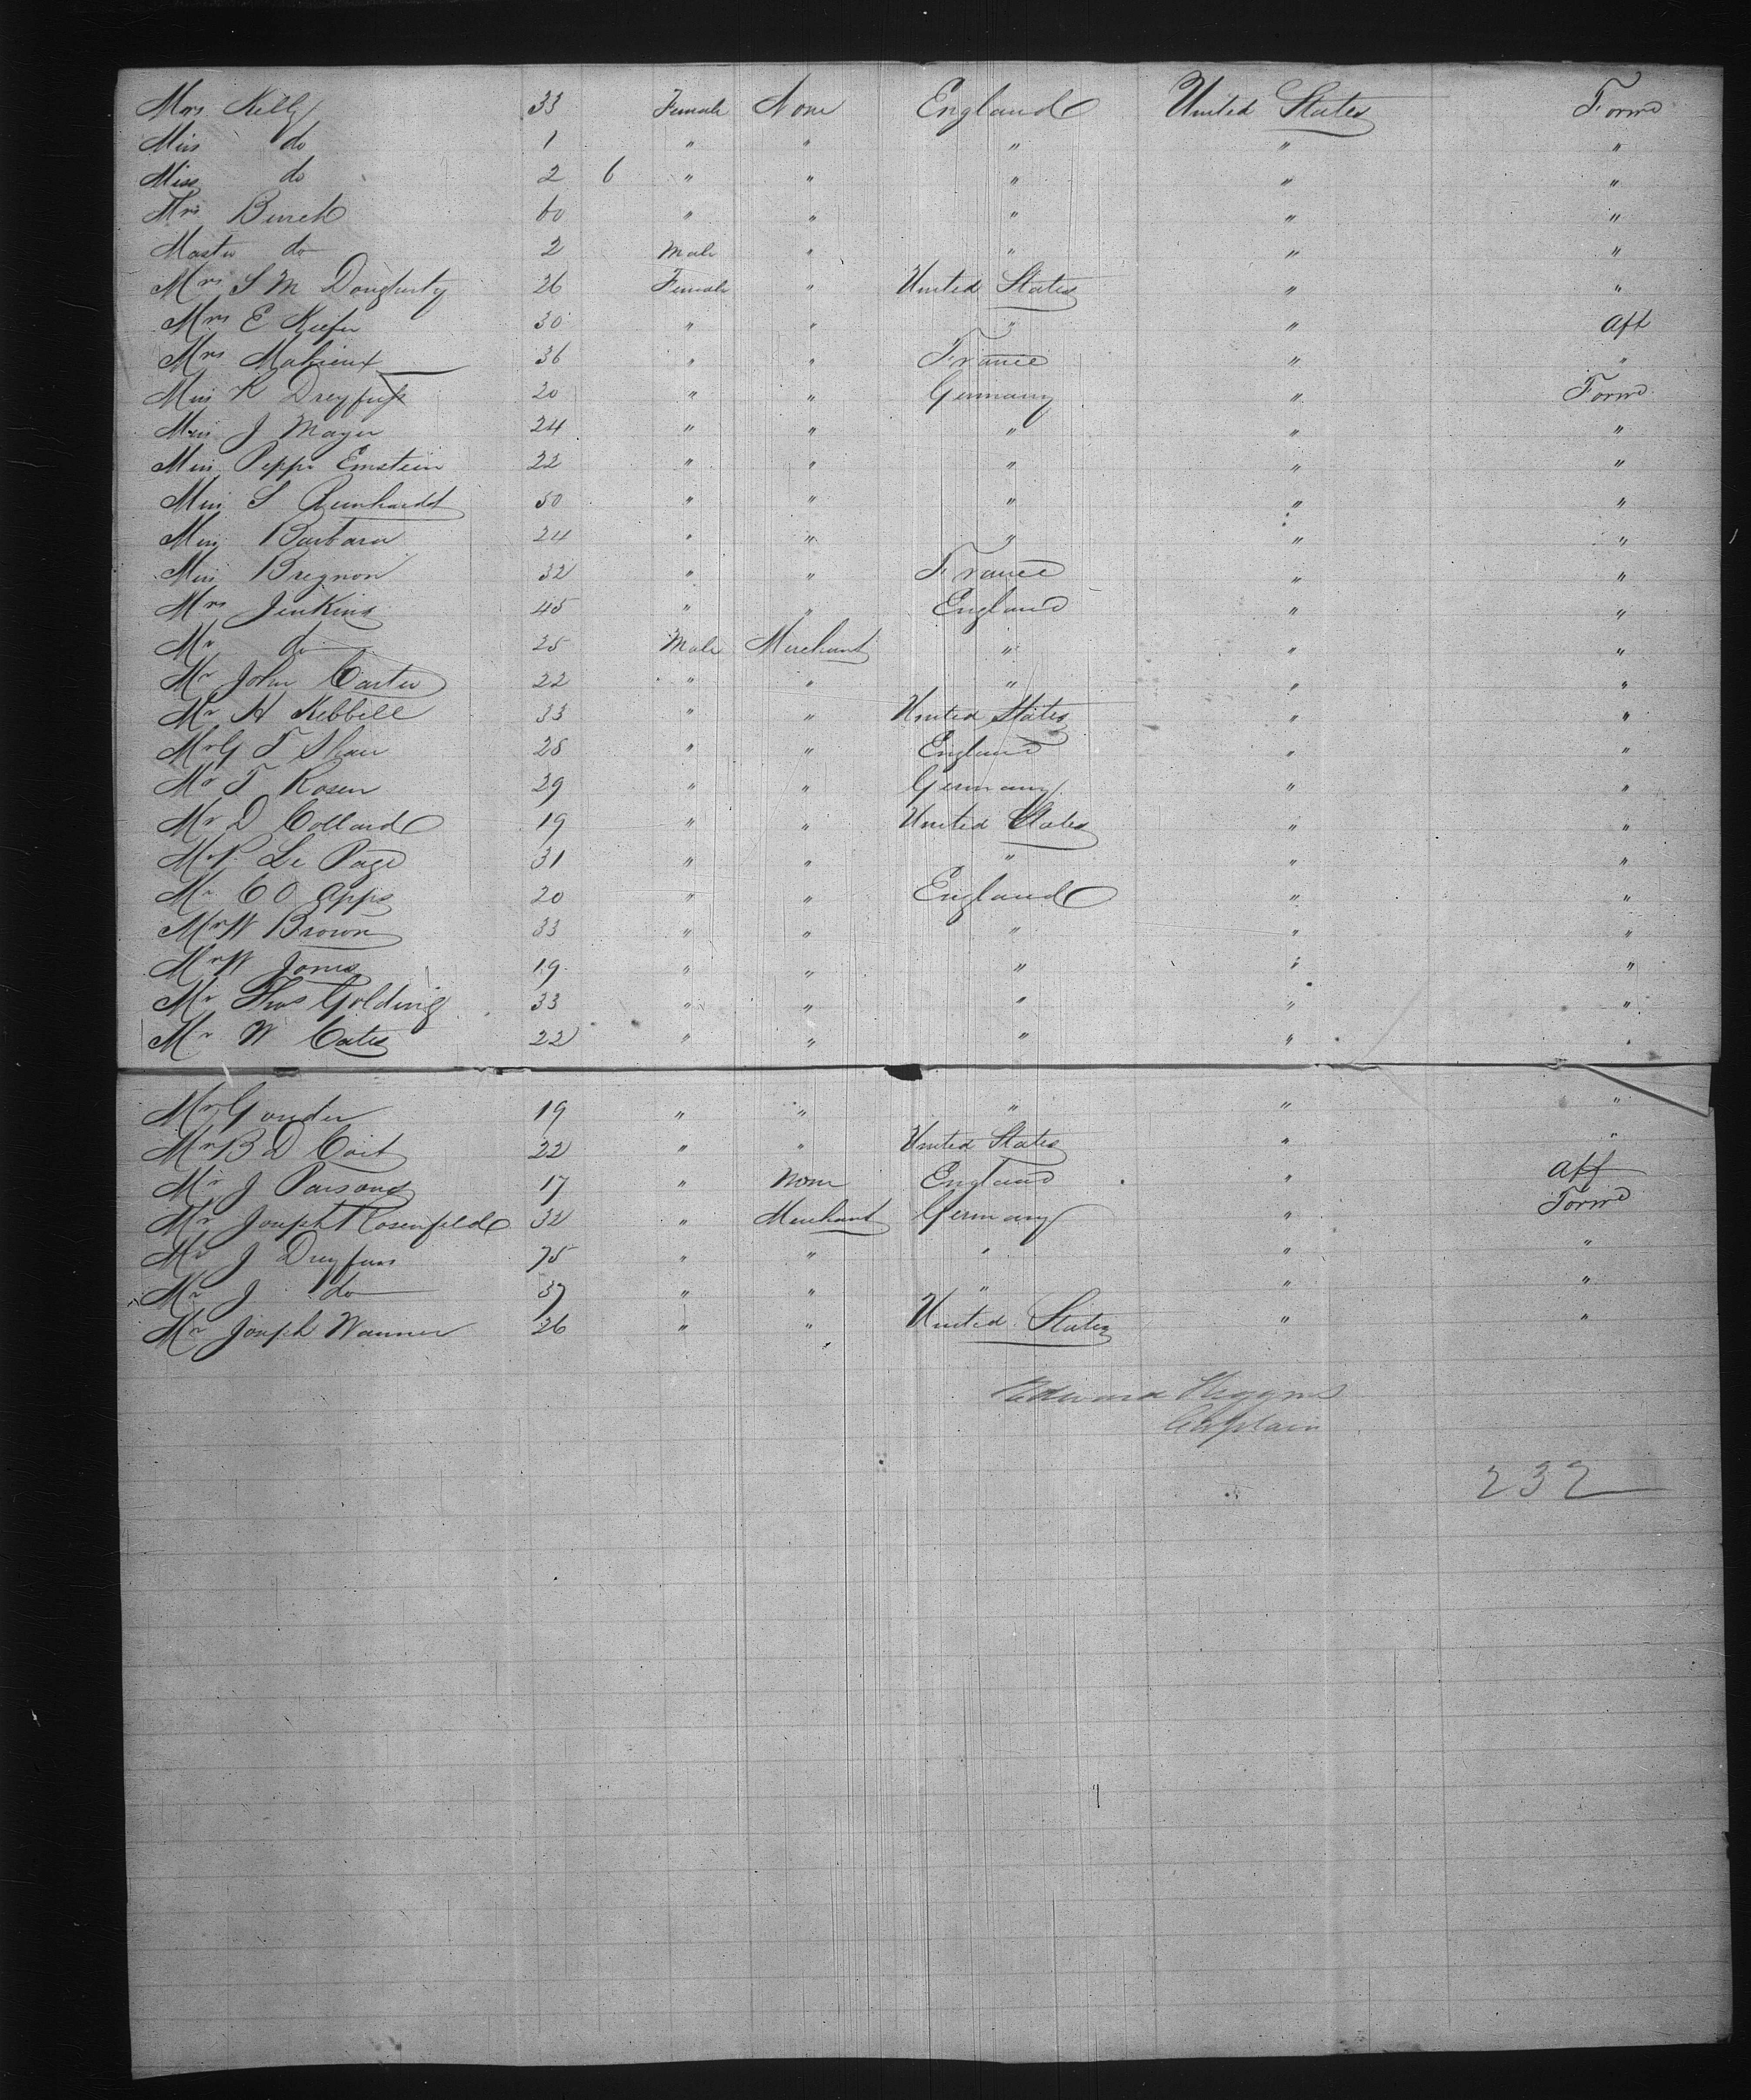 Mrs Kelly 33 Female None England United States Forwd
Miss do 1 " " " " "
Miss do 2 6 " " " " "
Mrs Burch 60 " " " " "
Master do 2 Male " " " "
Mrs S M Dougherty 26 Female " United States " "
Mrs E Kiefer 30 " " " " Aft
Mrs Mahieux 36 " " France " "
Miss K Dreyfuss 20 " " Germany " Forwd
Miss J Mayer 24 " " " " "
Miss Peppi Einstein 22 " " " " "
Miss S Reinhardt 50 " " " " "
Miss Barbara 24 " " " " "
Miss Bregnon 32 " " France " "
Mrs Jenkins 45 " " England " "
Mr do 25 Male Merchant " " "
Mr John Carter 22 " " " " "
Mr H Kebbell 33 " " United States " "
Mr G T Shaw 28 " " England " "
Mr T Rosen 29 " " Germany " "
Mr D Collard 19 " " United States " "
Mr P. Le Page 31 " " " " "
Mr C O Apps 20 " " England " "
Mr W Brown 33 " " " " "
Mr W Jones 19 " " " " "
Mr Thos Golding 33 " " " " "
Mr W Cates 22 " " " " "
Mr Gander 19 " " " " "
Mr B D Coit 22 " " United States " "
Mr J Parsons 17 " None England " Aft
Mr Joseph Rosenfeld 32 " Merchant Germany " Forwd
Mr J Dreyfuss 75 " " " " "
Mr J do 37 " " " " "
Mr Joseph Wanner 26 " " United States " "
Edward Higgins
Captain
232